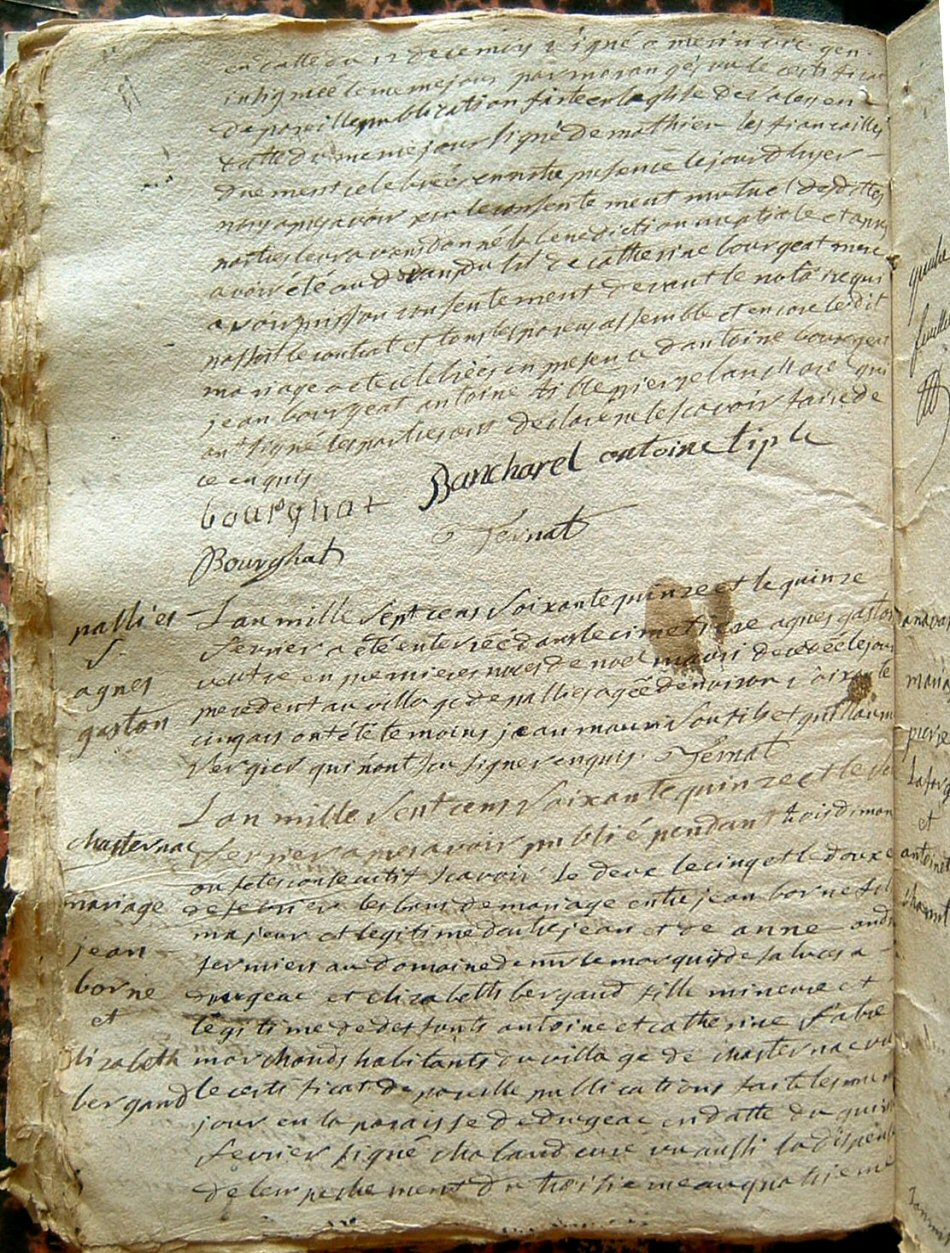 en datte du 12 decembre signé
insinuée le meme jour par vu le certificat
de pareille publication faite en leglise de en
datte du meme jour signé de mathieu les fiancailles
duement celebrées en notre presence le jour dhyer
nous apres avoir reçu le consentement mutuel desdittes
parties leurs avons donné la benediction nuptiale et
avoir été au devan du lit de catherine bourgeat mere
avoir pris son consentement devant le notaire qui
passoit le contrat et tous les parens assemblé et encore le dit
mariage a été celebrées en presence dantoine bourgeat
jean bourgeat antoine tible pierre bancharel qui
ont signé les parties ont declare ne le scavoir faire de
ce enquis
bourghat Bancharel antoine tiple
Bourghat Fernat
pallies
agnes
gaston
L'an mille sept cens soixante quinze et le quinze
fevrier a été enterrée dans le cimetiere agnes gaston
veufve en premieres noces de noel mauri decedée le jour
precedent au village de pallies agée denviron soixante
cinq ans ont été temoins jean mauri son fils et guillaume
vergier qui n'ont su signer enquis. Fernat
chasternac
mariage
jean
borne
et
Elizabeth
bergaud
L'an mille sept cens soixante quinze et le
fevrier apres avoir publié pendant trois diman
ou fetes consecutifs scavoir le deux le cinq et le douze
de fevrier les bans de mariage entre jean borne fil
majeur et legitime dautre jean et de anne
fermiers au domaine de mr le marquis de saluces a
drugeac et elizabeth bergaud fille mineure et
legitime de defunts antoine et catherine fabre
marchands habitants du village de chasternac vu
le certificat de pareille publications faite les mem
jour en la paroisse de drugeac en datte du quin
fevrier signé chaland cure vu aussi la dispen
de lempechement du troisieme au quatrieme